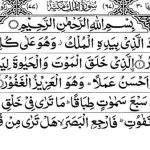 سُوْرَةُ الْمُلْكِ مَكِّيَّةٌ
بِسْمِ اللهِ الرَّحْمٰنِ الرَّحِيْمِ
الَّذِيْ بِيَدِهِ الْمُلْكُ ۡ وَهُوَ عَلٰى كُلِّ
الَّذِيْ خَلَقَ الْمَوْتَ وَالْحَيٰوةَ
اَحْسَنُ عَمَلًا ؕ وَهُوَ الْعَزِيْزُ الْغَفُوْرُ
سَبْعَ سَمٰوٰتٍ طِبَاقًا ؕ مَا تَرٰى فِيْ خَلْقِ
فَارْجِعِ الْبَصَرَ ۙ هَلْ تَرٰى